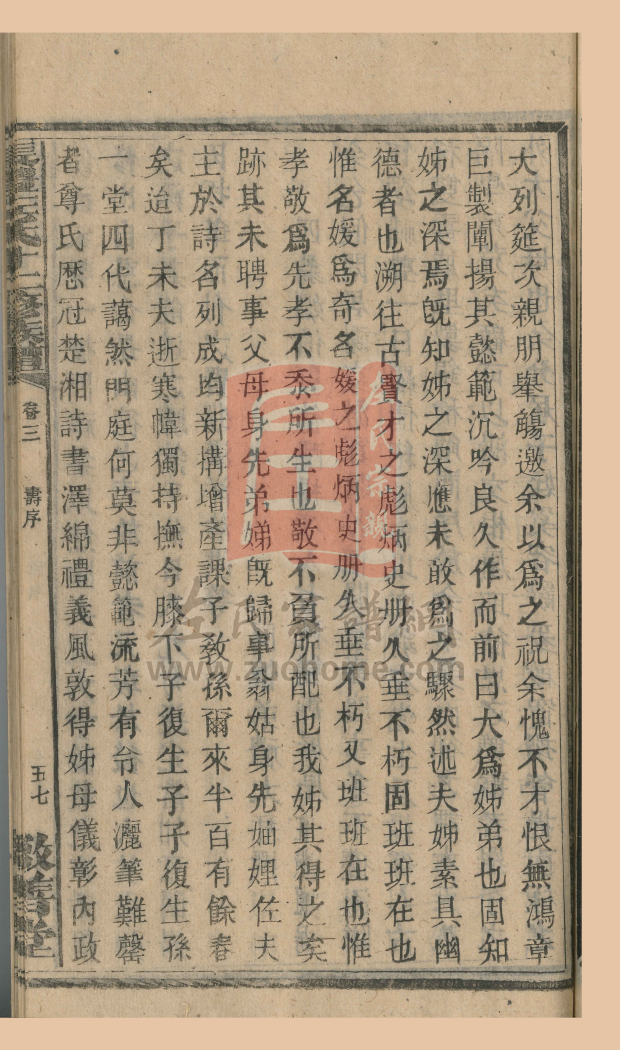 大列筵次親朋舉觴邀余以爲之祝余愧不才恨無鴻章
巨製闡揚其懿範沉吟良久作而前曰大爲姊弟也固知
姊之深焉旣知姊之深應未敢爲之驟然述夫姊素具幽
德者也溯往古賢才之彪炳史册久垂不朽固班班在也
惟名媛爲奇名媛之彪炳史册久垂不朽又班班在也惟
孝敬爲先孝不忝所生也敬不負所配也我姊其得之矣
跡其未聘事父母身先弟娣旣歸事翁姑身先妯娌佐夫
主於詩名列成均新搆增產課子敎孫爾來半百有餘春
矣迨丁未夫逝寒幃獨持撫今膝下子復生子子復生孫
一堂四代藹然門庭何莫非懿範流芳有令人灑筆難罄
者尊氏歷冠楚湘詩書澤綿禮義風敦得姊母儀彰內政
卷三
壽序
五七
左氏宗譜網
www.zuohome.com